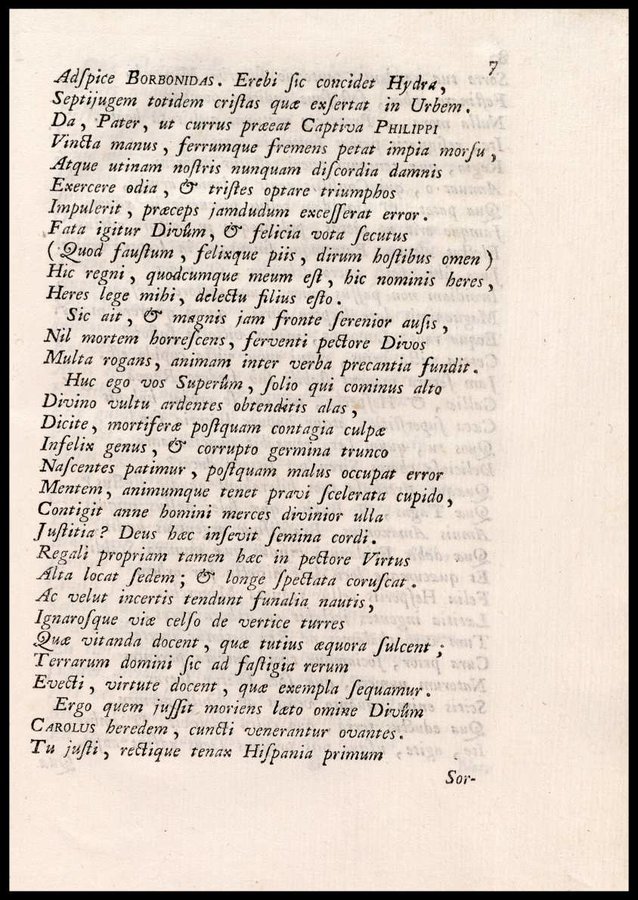 7
Adſpice BORBONIDAS. Erebi ſic concidet Hydra,
Septijugem totidem criſtas quæ exſertat in Urbem.
Da, Pater, ut currus præeat Captiva PHILIPPI
Vincta manus, ferrumque fremens petat impia morſu,
Atque utinam noſtris nunquam diſcordia damnis
Exercere odia, & triſtes optare triumphos
Impulerit, præceps jamdudum exceſſerat error.
Fata igitur Divûm, & felicia vota ſecutus
(Quod fauſtum, felixque piis, dirum hoſtibus omen)
Hic regni, quodcumque meum eſt, hic nominis heres,
Heres lege mihi, delectu filius eſto.
Sic ait, & magnis jam fronte ſerenior auſis,
Nil mortem horreſcens, ferventi pectore Divos
Multa rogans, animam inter verba precantia fundit.
Huc ego vos Superûm, ſolio qui cominus alto
Divino vultu ardentes obtenditis alas,
Dicite, mortiferæ poſtquam contagia culpæ
Infelix genus, & corrupto germina trunco
Naſcentes patimur, poſtquam malus occupat error
Mentem, animumque tenet pravi ſcelerata cupido,
Contigit anne homini merces divinior ulla
Juſtitia? Deus hæc inſevit ſemina cordi.
Regali propriam tamen hæc in pectore Virtus
Alta locat ſedem; & longe ſpectata coruſcat.
Ac velut incertis tendunt funalia nautis,
Ignaroſque viæ celſo de vertice turres
Quæ vitanda docent, quæ tutius æquora ſulcent;
Terrarum domini ſic ad faſtigia rerum
Evecti, virtute docent, quæ exempla ſequamur.
Ergo quem juſſit moriens læto omine Divûm
CAROLUS heredem, cuncti venerantur ovantes.
Tu juſti, rectique tenax Hiſpania primum
Sor-